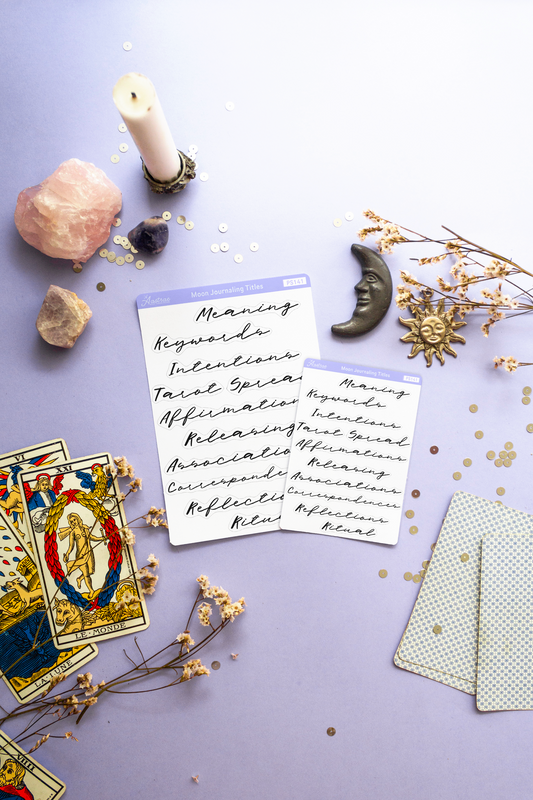 Moon Journaling Titles
Meaning
Keywords
Intentions
Tarot Sprea
Affirmation
Releasing
Associatio
Corresponde
Reflecti
Ritu
Moon Journaling Titles
Meaning
Keywords
Intentions
Tarot Spread
Affirmations
Releasing
Associations
Correspondences
Reflections
Ritual
VI
XXI
LE·MONDE
LA·LUNE
VIIII